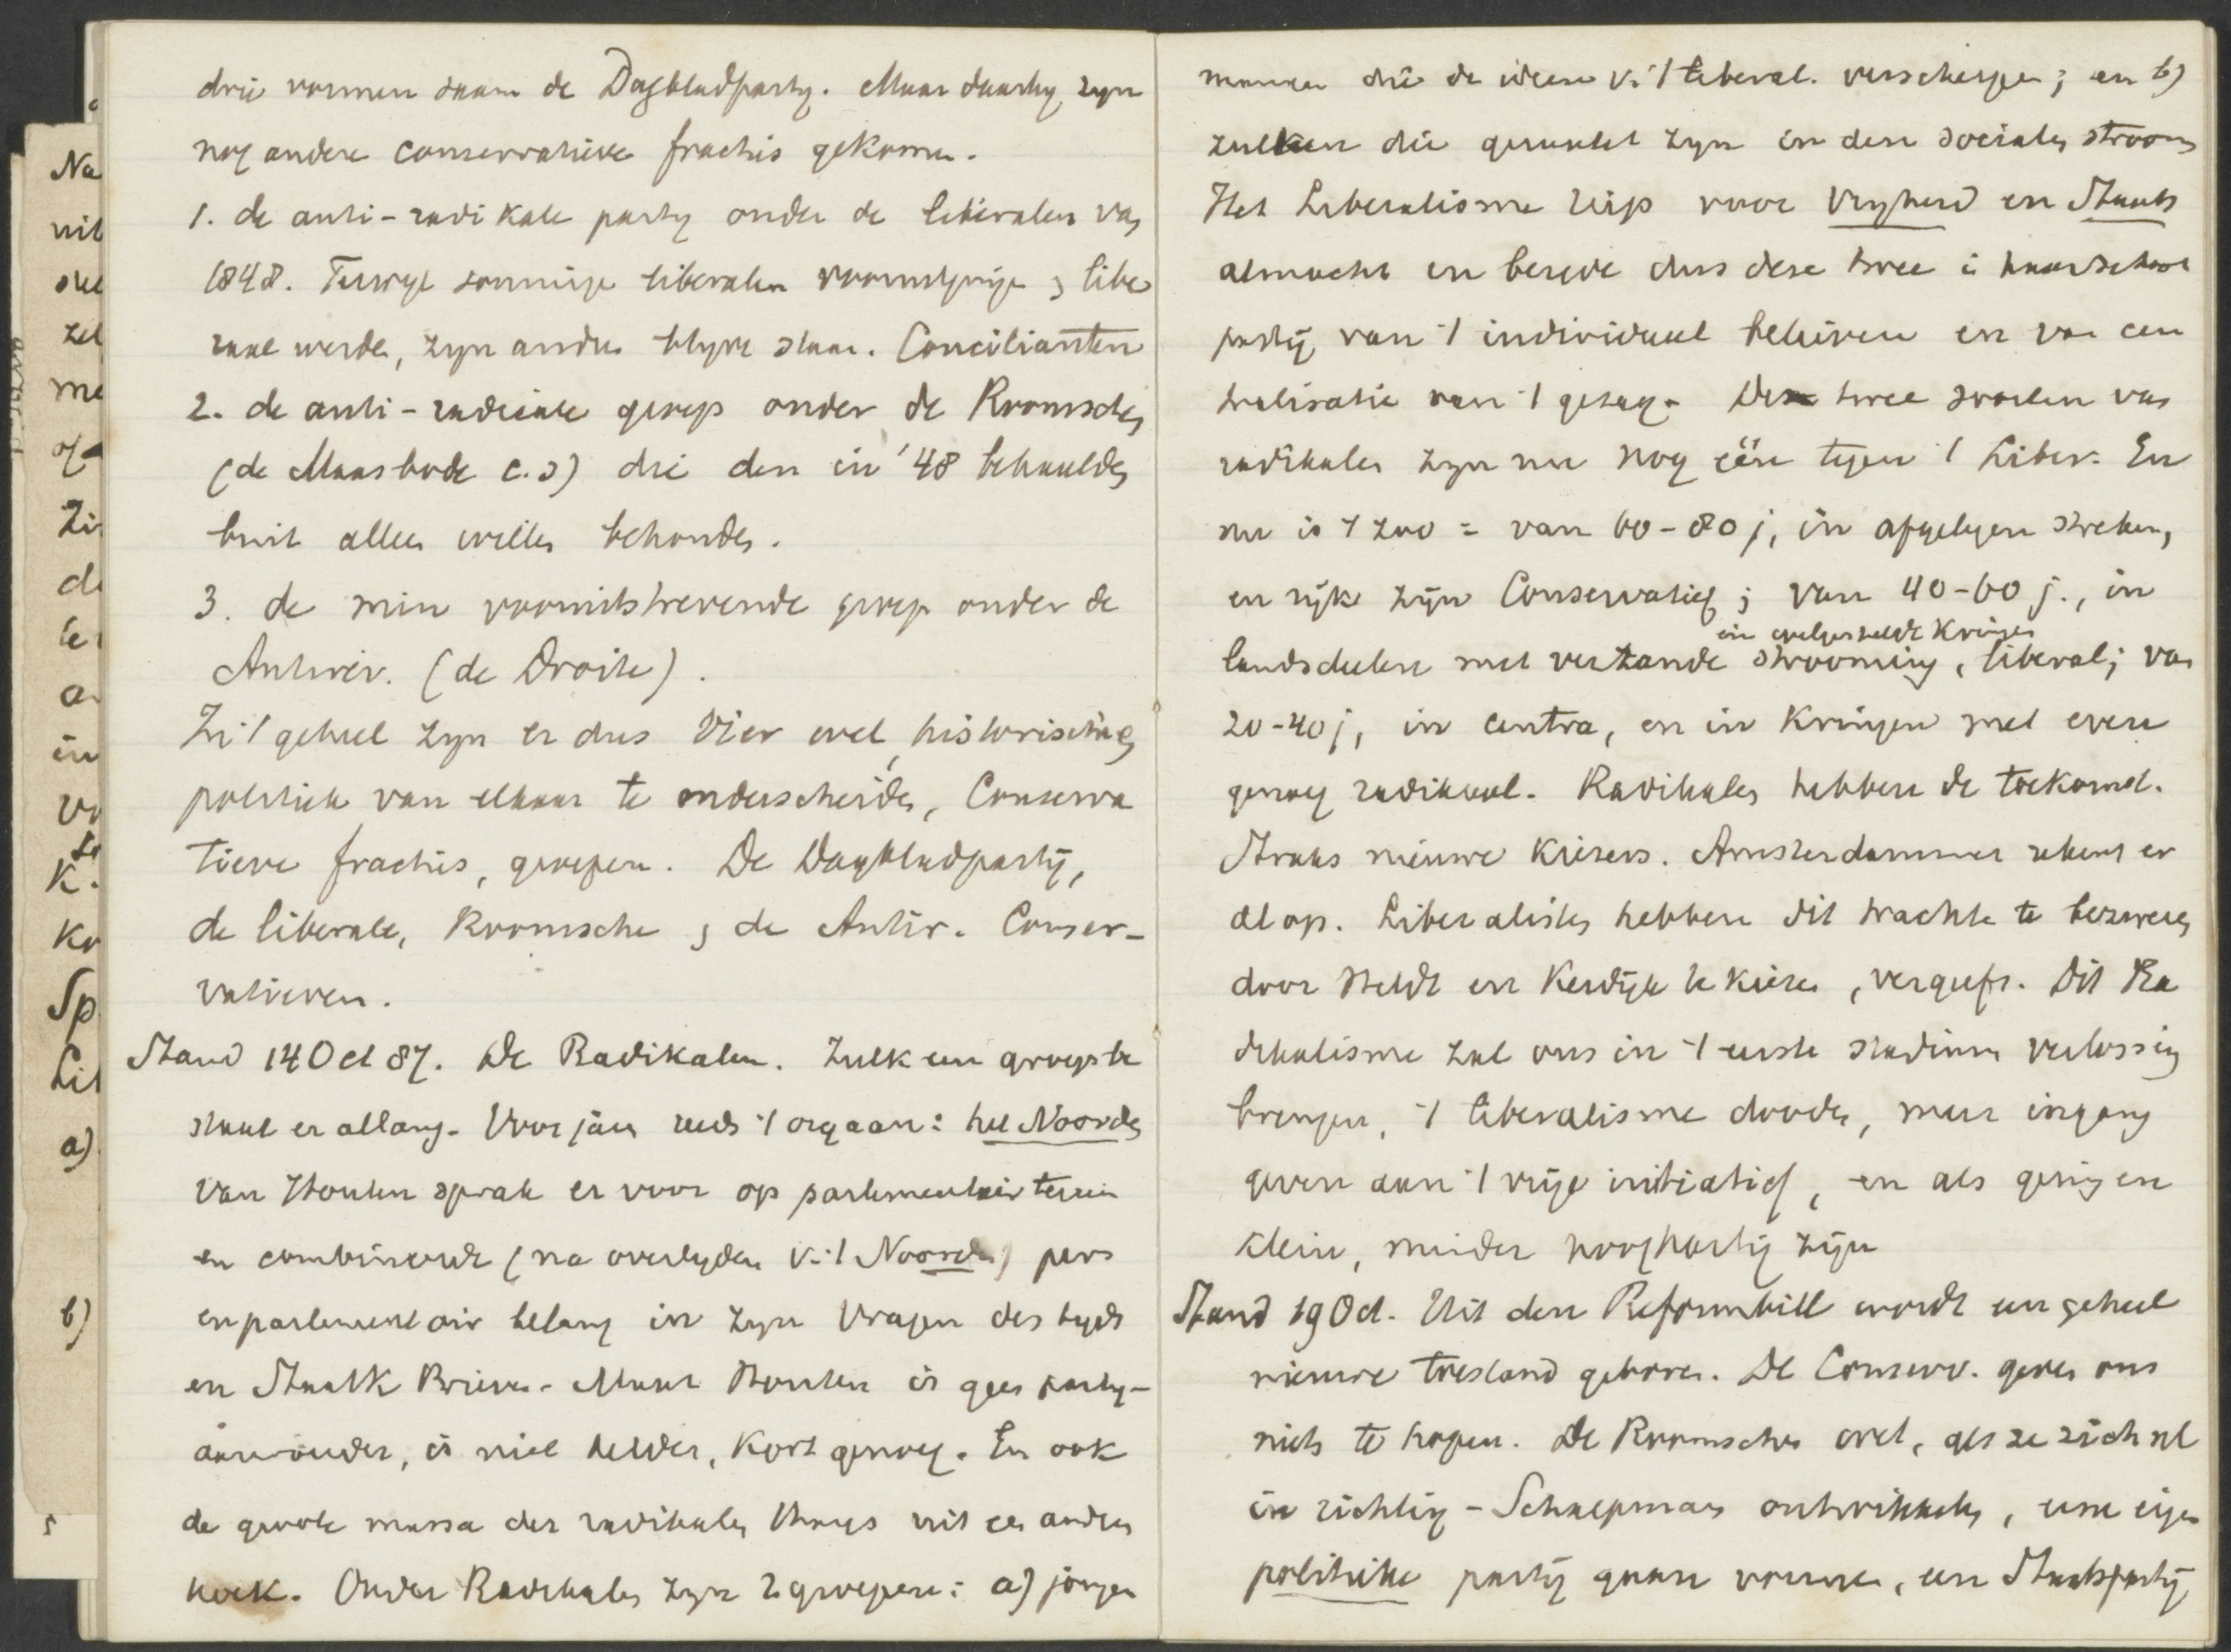 drie vormen saam de Dagbladparty. Maar daarby zyn
nog andere conservatieve fractis gekomen.
1. de anti-radikale party onder de liberalen van
1848. Terwyl sommige liberalen vooruitgingen & libe
raal werden, zyn andere blyven staan. Concilianten
2. de anti-radicale groep onder de Roomschen
(de Maasbode c.s) die den in '48 behaalden
buit alleen willen behouden.
3. de min vooruitstrevende groep onder de
Antirev. (de Droite).
In 't geheel zyn er dus Vier wel, historisch en
politiek van elkaar te onderscheiden, Conserva
tieve fractis, groepen. De Dagbladparty,
de liberale, Roomsche & de Antir. Conser-
vatieven.
Stand 14 Oct 87. De Radikalen. Zulk een groepske
staat er allang. Voor jaren reeds 't orgaan: het Noorden
Van Houten sprak er voor op parlementair terrein
en combineerde (na overlyden v. 't Noorden) pers
en parlementair belang in zyn Vragen des tyds
en Staatk Brieven. Maar Houten is geen party-
aanvoerder, is niet helder, kort genoeg. En ook
de groote massa der radikalen thans uit een andere
hoek. Onder Radikalen zyn 2 groepen: a) jongen
mannen die de ideen v. 't liberal. verscherpen; en b)
zulken die geraakt zyn in den socialen stroom
Het Liberalisme riep voor Vryheid en Staats
almacht en besede dus deze twee i haar schoot
party van 't individueel believen en van cen
tralisatie van 't gezag. Deze twee soorten van
radikalen zyn nu nog één tegen 't Liber. En
nu is 't zoo = van 60-80 j, in afgelegen streken,
en rijke zijn Conservatief; van 40-60 j., in
in welgestelde kringen
landsdeelen met verzande strooming, liberal; van
20-40 j, in centra, en in kringen met even
genoeg radikaal. Radikalen hebben de toekomst.
Straks nieuwe kiezers. Amsterdammer rekent er
al op. Liberalisten hebben dit trachte te bezweren
door Heldt en Kerdijk te kiezen, vergeefs. Dit Ra
dikalisme zal ons in 't eerste stadium verlossing
brengen, 't liberalisme dooden, meer ingang
geven aan 't vrije initiatief, en als gering en
klein, minder hooghartig zijn
Stand 19 Oct. Uit den Reformbill wordt een geheel
nieuwe toestand geboren. De Conserv. geven ons
niets te hopen. De Roomschen wel, als ze zich nl
in richting-Schaepman ontwikkelen, eene eigen
politieke partij gaan vormen, een Staatspartij